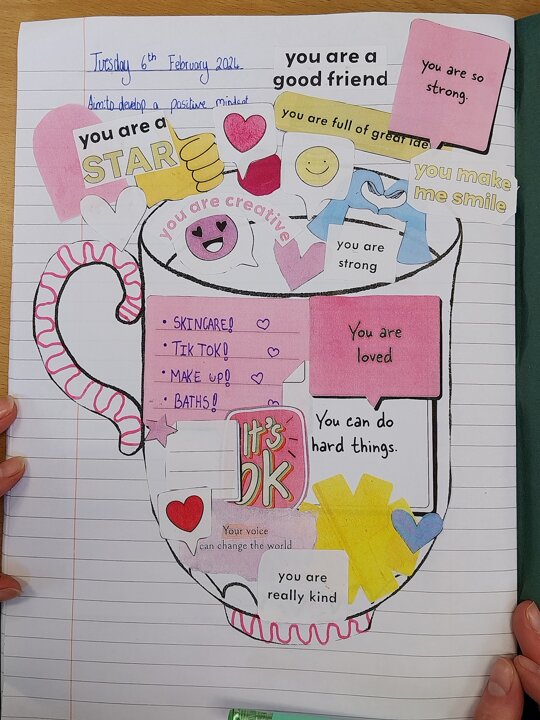 Tuesday 6th February 2024
Aim: to develop a positive mindset
you are a
good friend
you are so
strong.
you are full of great ide
you are a
STAR
you make
me smile
you are creative
you are
strong
• SKINCARE!
• TIK TOK!
• MAKE UP!
• BATHS!
You are
loved
You can do
hard things.
It's
OK
Your voice
can change the world
you are
really kind